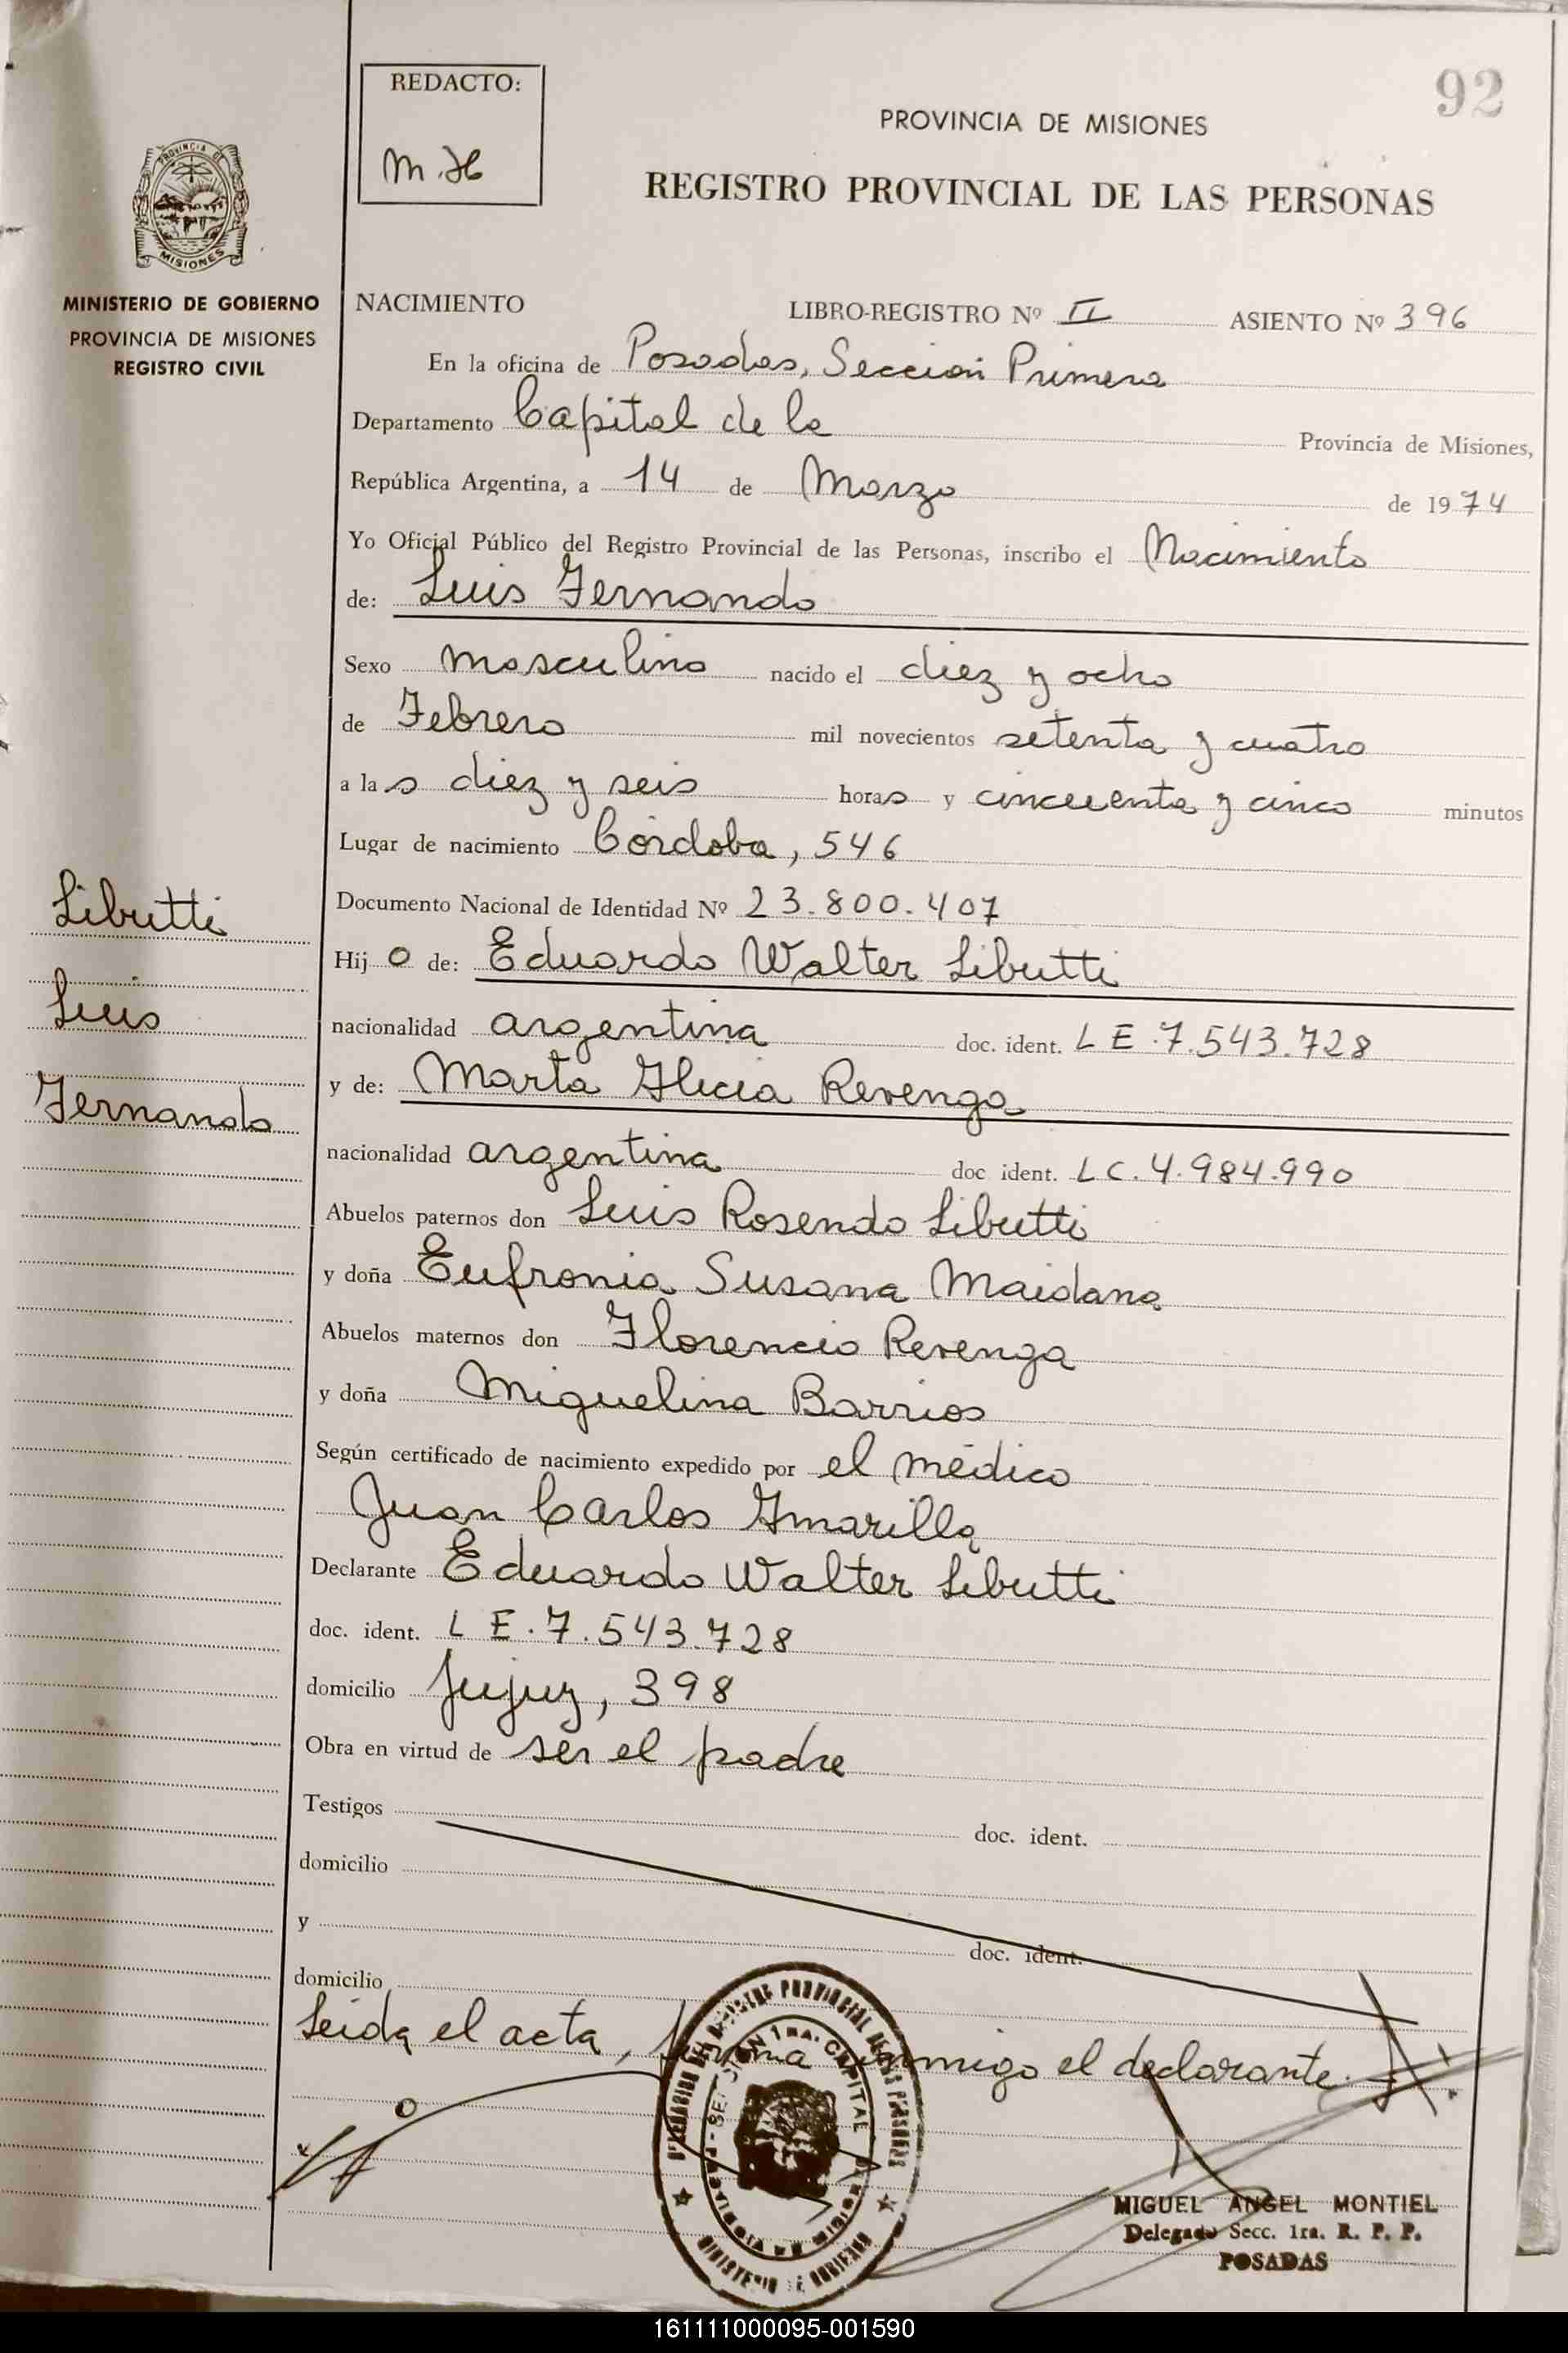 92
REDACTO:
M.H
PROVINCIA DE MISIONES
REGISTRO PROVINCIAL DE LAS PERSONAS
PROVINCIA DE
MISIONES
MINISTERIO DE GOBIERNO
PROVINCIA DE MISIONES
REGISTRO CIVIL
NACIMIENTO LIBRO-REGISTRO Nº II ASIENTO Nº 396
En la oficina de Posadas, Sección Primera
Departamento Capital de la Provincia de Misiones,
República Argentina, a 14 de Marzo de 1974
Yo Oficial Público del Registro Provincial de las Personas, inscribo el Nacimiento
de: Luis Fernando
Sexo masculino nacido el diez y ocho
de Febrero mil novecientos setenta y cuatro
a las diez y seis horas y cincuenta y cinco minutos
Lugar de nacimiento Córdoba, 546
Documento Nacional de Identidad Nº 23.800.407
Libutti
Luis
Fernando
Hijo de: Eduardo Walter Libutti
nacionalidad argentina doc. ident. L E .7.543.728
y de: Marta Alicia Revenga
nacionalidad argentina doc ident. L C. 4.984.990
Abuelos paternos don Luis Rosendo Libutti
y doña Eufronia Susana Maidana
Abuelos maternos don Florencio Revenga
y doña Miguelina Barrios
Según certificado de nacimiento expedido por el médico
Juan Carlos Amarilla
Declarante Eduardo Walter Libutti
doc. ident. L E. 7.543.728
domicilio Jujuy, 398
Obra en virtud de ser el padre
Testigos doc. ident.
domicilio
y doc. ident.
domicilio
Leida el acta, firma conmigo el declarante.
MIGUEL ANGEL MONTIEL
Delegado Secc. 1ra. R. P. P.
POSADAS
161111000095-001590